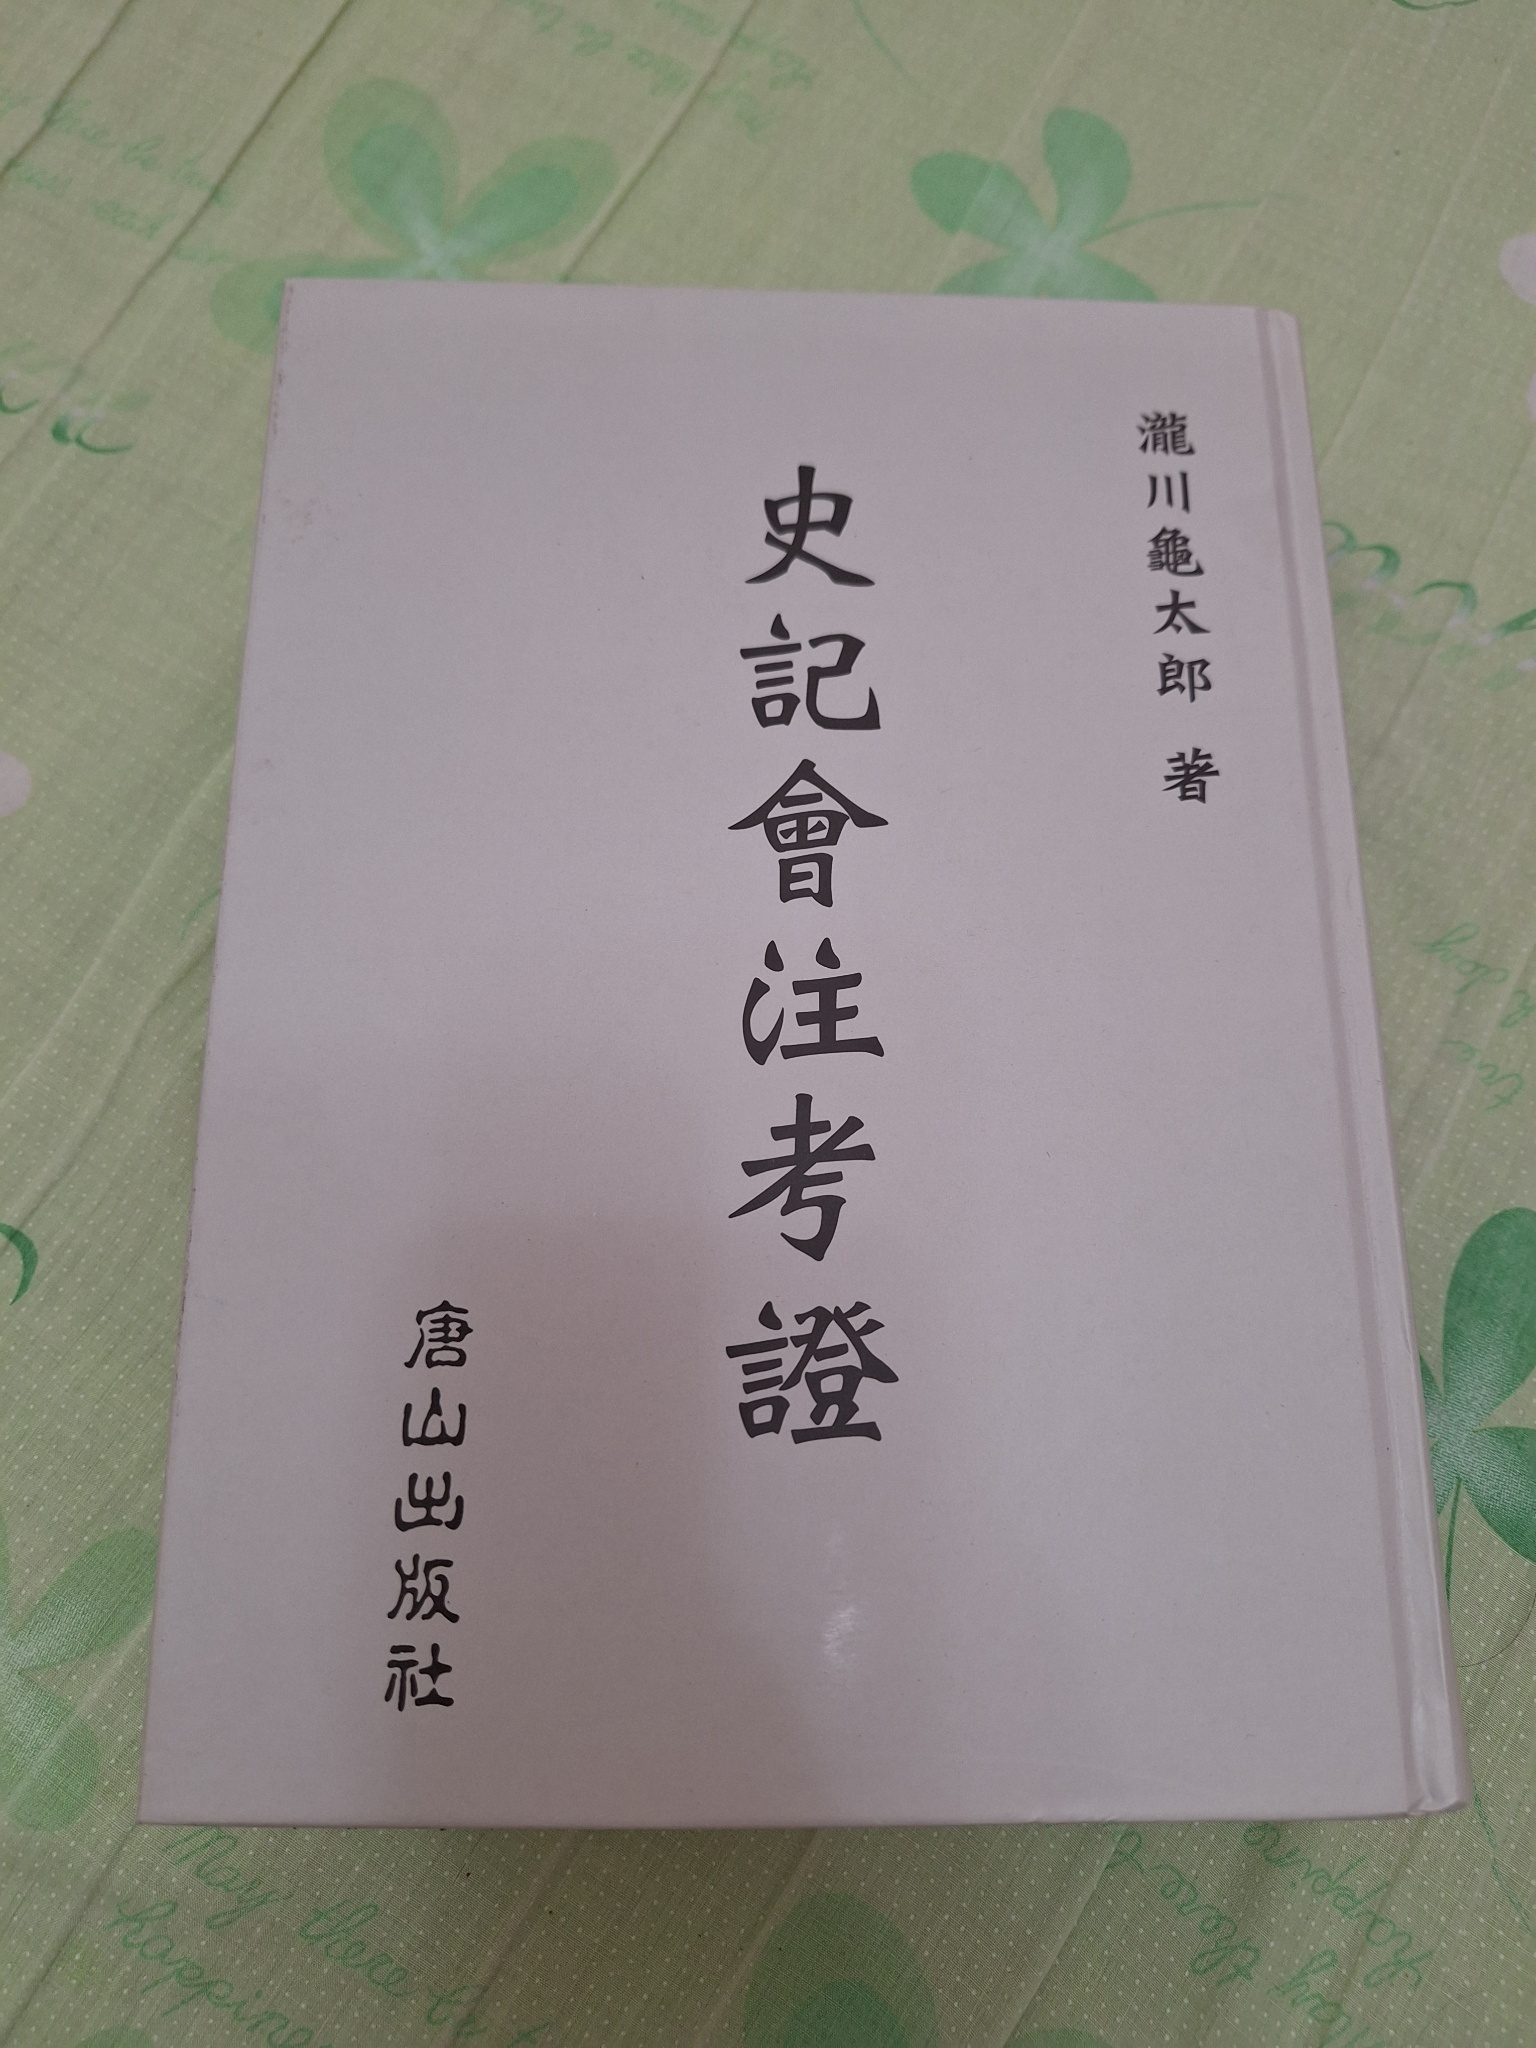 瀧川龜太郎 著
史記會注考證
唐山出版社
May there
happine